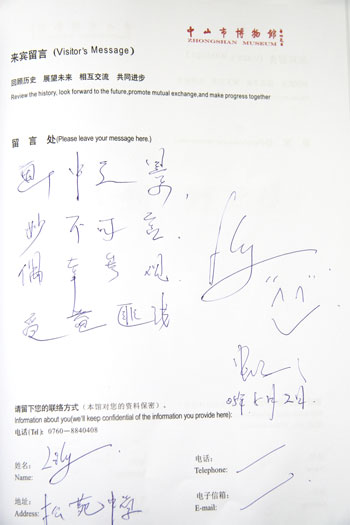 中山市博物馆
ZHONGSHAN MUSEUM
来宾留言 (Visitor's Message)
回顾历史 展望未来 相互交流 共同进步
Review the history, look forward to the future,promote mutual exchange,and make progress together
留 言 处(Please leave your message here.)
画中之景,
妙不可言.
偶幸参观
受益匪浅
05年5月2日.
请留下您的联络方式(本馆对您的资料保密).
Information about you(we'll keep confidential of the information you provide here):
电话(Tel): 0760—8840408
姓名: Lily
Name:
电话:
Telephone:
地址: 松苑中学
Address:
电子信箱:
E-mail: